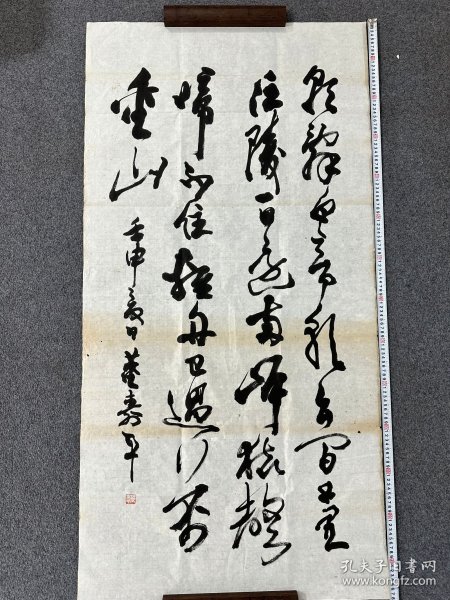 朝辞白帝彩云间千里
江陵一日还两岸猿声
啼不住轻舟已过万
重山
壬申夏日董寿平
孔夫子旧书网
www.kongfz.com